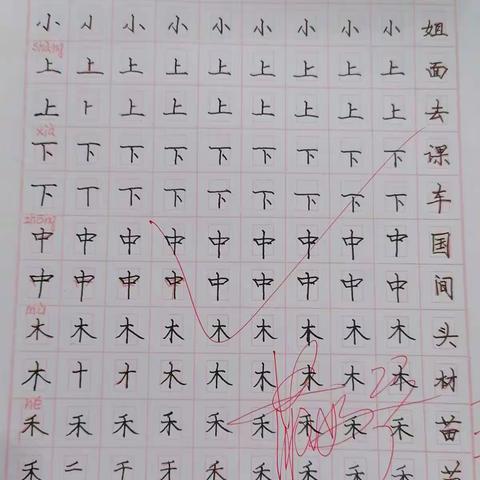 小 小 小 小 小 小 小 小 姐
shàng
上 上 上 上 上 上 上 上 上 面
上 卜 上 上 上 上 上 上 上 去
xià
下 下 下 下 下 下 下 下 下 课
下 丅 下 下 下 下 下 下 下 车
zhōng
中 中 中 中 中 中 中 中 中 国
中 中 中 中 中 中 中 中 中 间
mù
木 木 木 木 木 木 木 木 木 头
木 十 才 木 木 木 木 木 木 材
hé
禾 禾 禾 禾 禾 禾 禾 禾 禾 苗
禾 二 千 禾 禾 禾 禾 禾